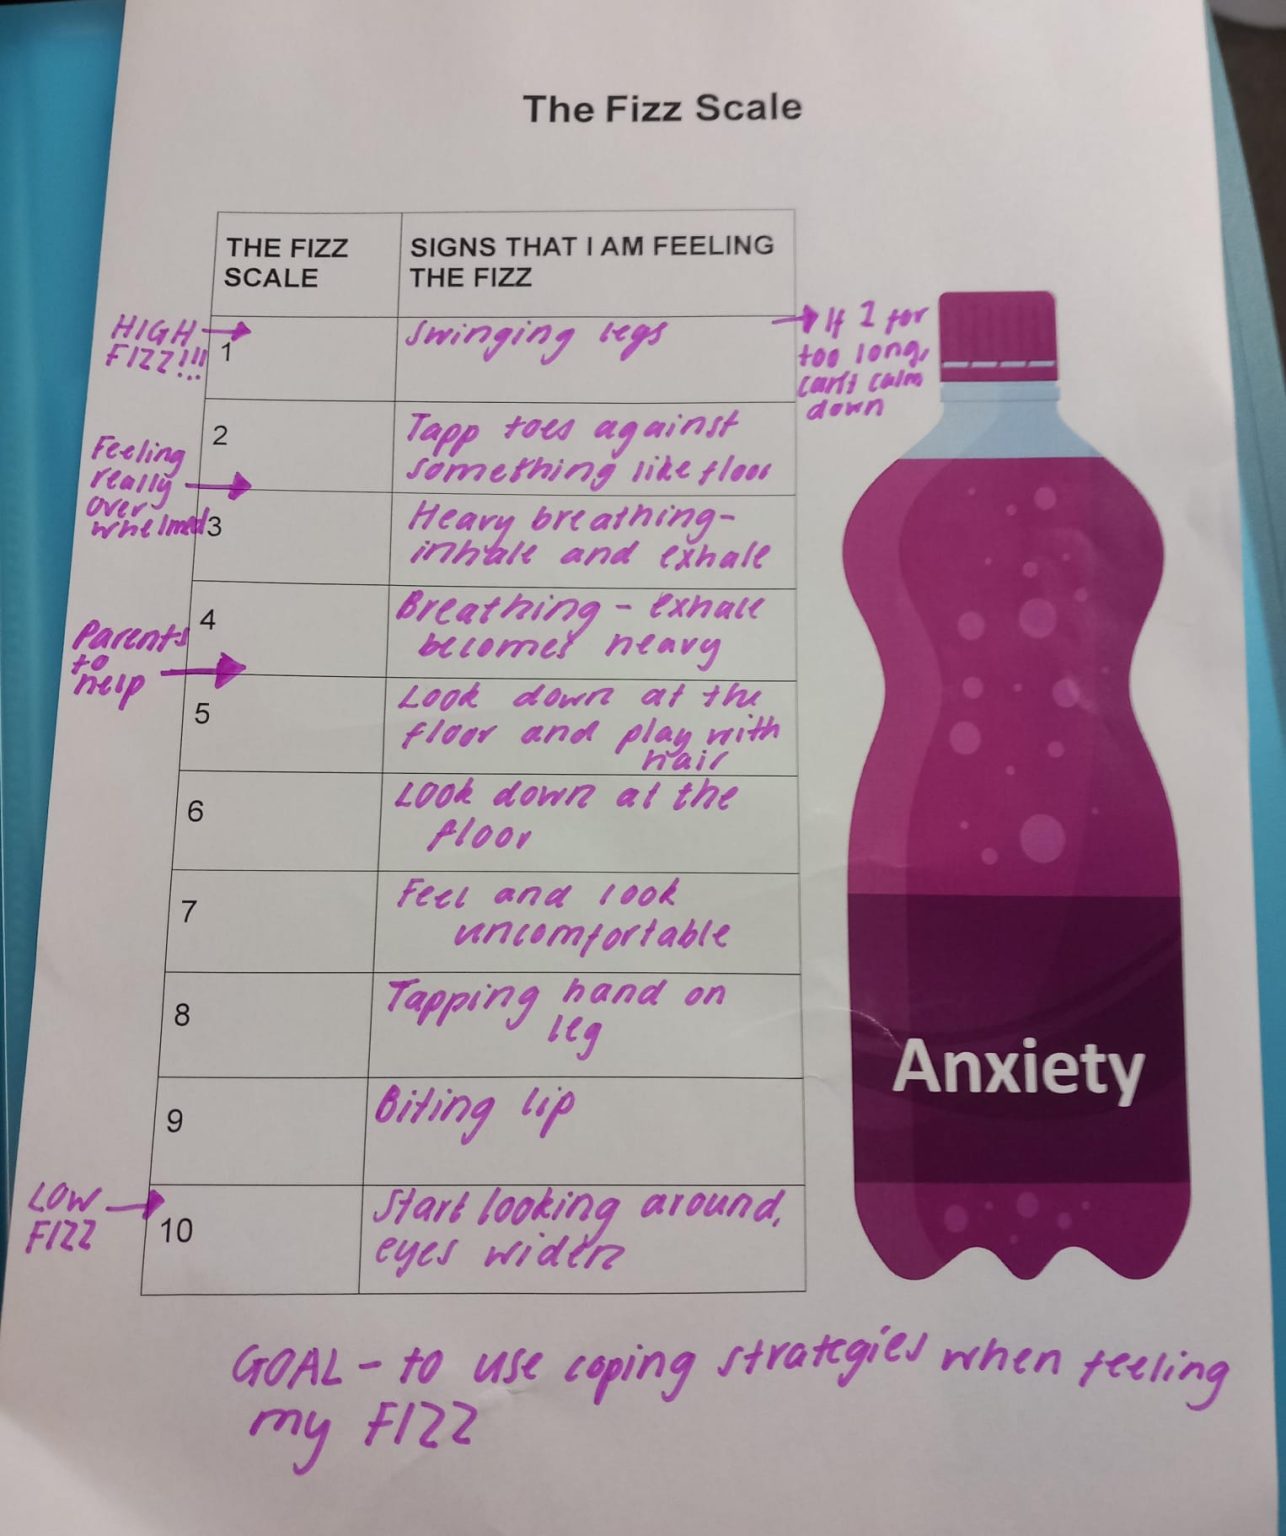 The Fizz Scale
THE FIZZ
SCALE
SIGNS THAT I AM FEELING
THE FIZZ
HIGH
FIZZ!!!
1
Swinging legs
If 1 for
too long,
can't calm
down
2
Tapp toes against
something like floor
Feeling
really
over
whelmed
3
Heavy breathing-
inhale and exhale
4
Breathing - exhale
becomes heavy
Parents
to
help
5
Look down at the
floor and play with
hair
6
Look down at the
floor
7
Feel and look
uncomfortable
8
Tapping hand on
leg
9
Biting lip
LOW
FIZZ
10
Start looking around,
eyes widen
Anxiety
GOAL - to use coping strategies when feeling
my FIZZ